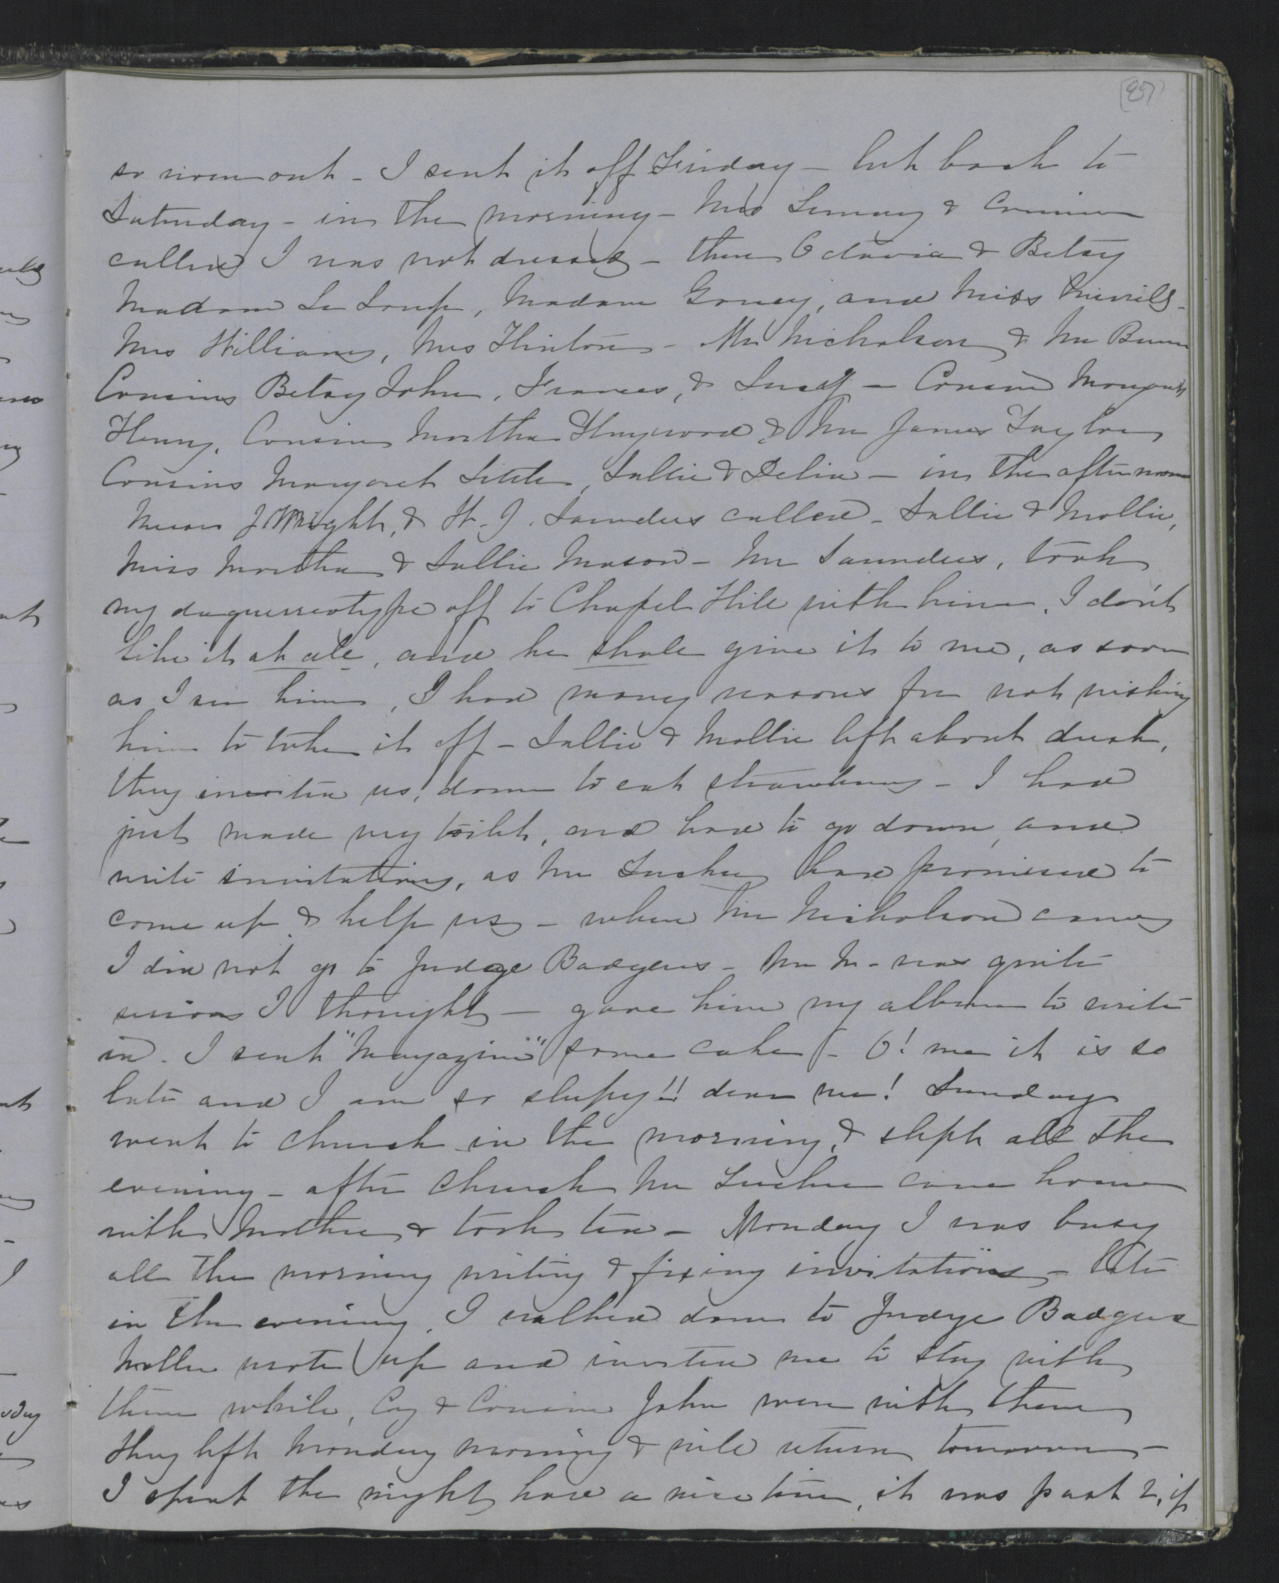 (87)
so worn out - I sent it off Friday - but back to
Saturday - in the morning - Mrs &
called I was not dressed - then Octavia & Betsy
Madam Le Loup, Madam Goney, and Miss
Mrs Williams, Mrs Hinton - Mr Nicholson & Mr
Cousins Betsy John, Frances, & Lucy - Cousin Margaret
Henry, Cousin Martha Haywood & Mr James Taylor
Cousins Margaret Little, Sallie & Delia - in the afternoon
J Wright, & W. J. Saunders called - Sallie & Mollie,
Miss Martha & Sallie Mason - Mr Saunders, took
my daguerreotype off to Chapel Hill with him, I don't
like it at all, and he shall give it to me, as soon
as I see him, I had many reasons for not wishing
him to take it off - Sallie & Mollie left about dusk,
they invited us down to eat strawberries - I had
just made my toilet, and had to go down, and
write invitations, as Mr had promised to
come up & help us - when Mr Nicholson came
I did not go to Judge Badgers - Mr N- was quite
serious I thought - gave him my album to write
in. I sent "Magazine" some cake - O! me it is so
late and I am so sleepy!! dear me! Sunday
went to church in the morning, & slept all the
evening - after church Mr came home
with Mother & took tea - Monday I was busy
all the morning writing & fixing invitations - late
in the evening, I walked down to Judge Badgers
Mollie wrote up and invited me to stay with
them while, & Cousin John were with them
they left Monday morning & will return tomorrow -
I spent the night had a nice time, it was past 2, if